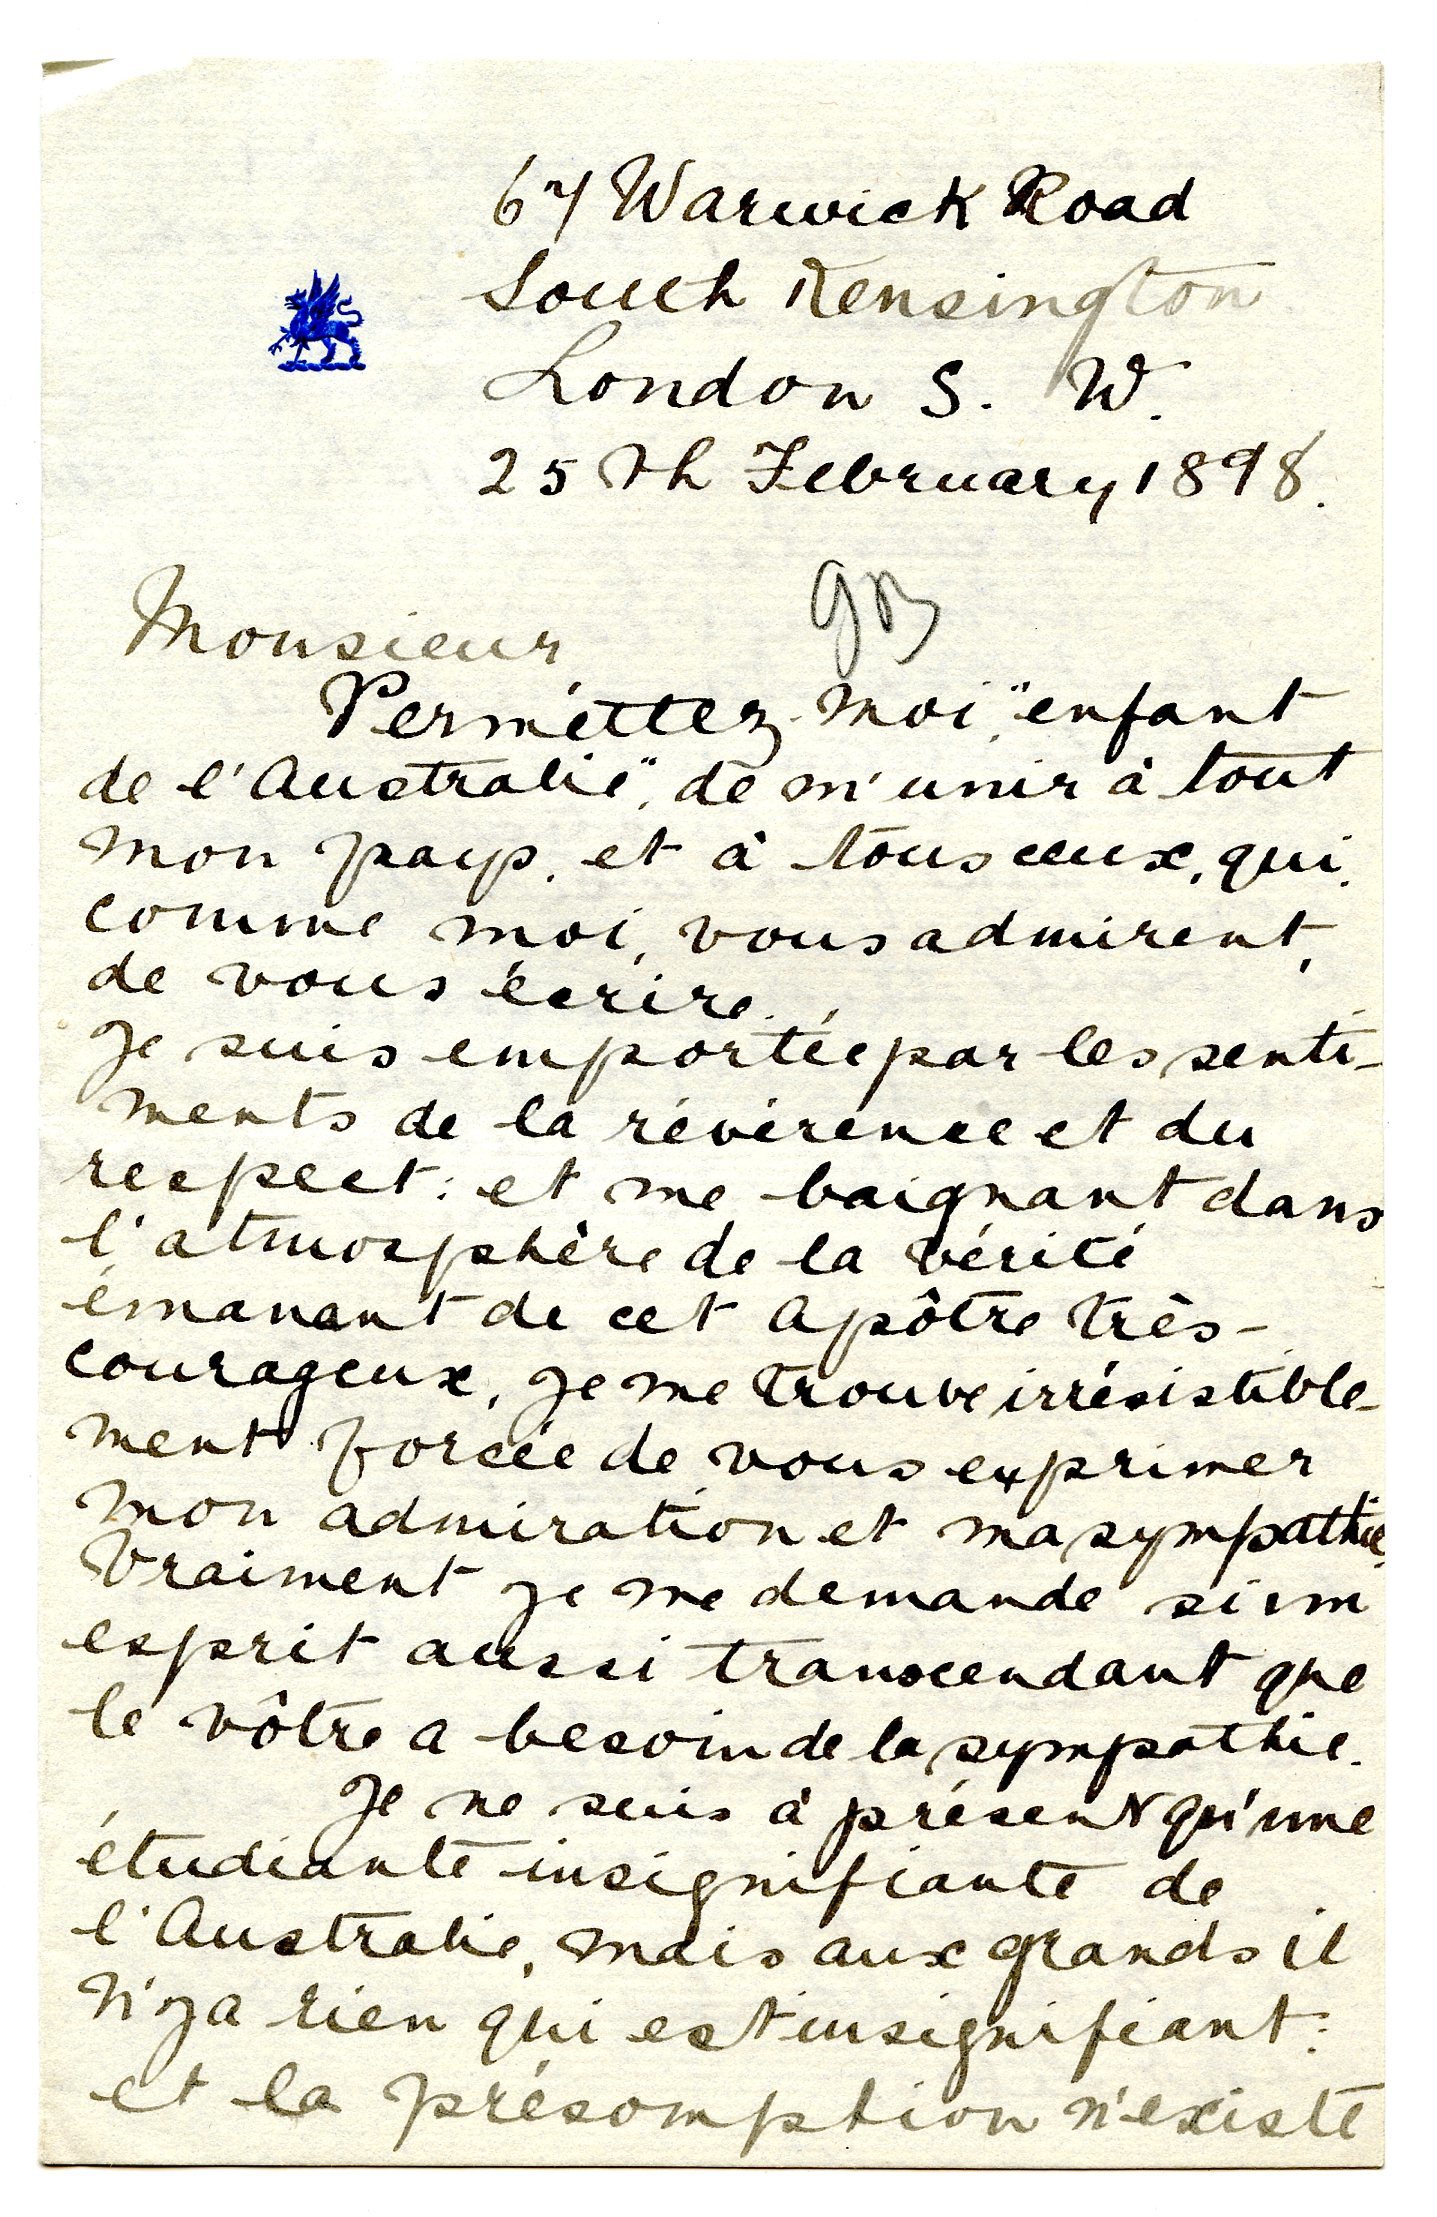 67 Warwick Road
South Kensington
London S. W.
25th February 1898.
Monsieur
Permettez-moi, "enfant
de l'Australie", de m'unir à tout
mon pays, et à tous ceux, qui,
comme moi, vous admirent,
de vous écrire.
Je suis emportée par les senti-
ments de la révérence et du
respect: et me baignant dans
l'atmosphère de la vérité
émanant de cet Apôtre très-
courageux, je me trouve irrésistible-
ment forcée de vous exprimer
mon admiration et ma sympathie.
Vraiment je me demande si un
esprit aussi transcendant que
le vôtre a besoin de la sympathie.
Je ne suis à présent qu'une
étudiante insignifiante de
l'Australie, mais aux grands il
n'y a rien qui est insignifiant:
et la présomption n'existe